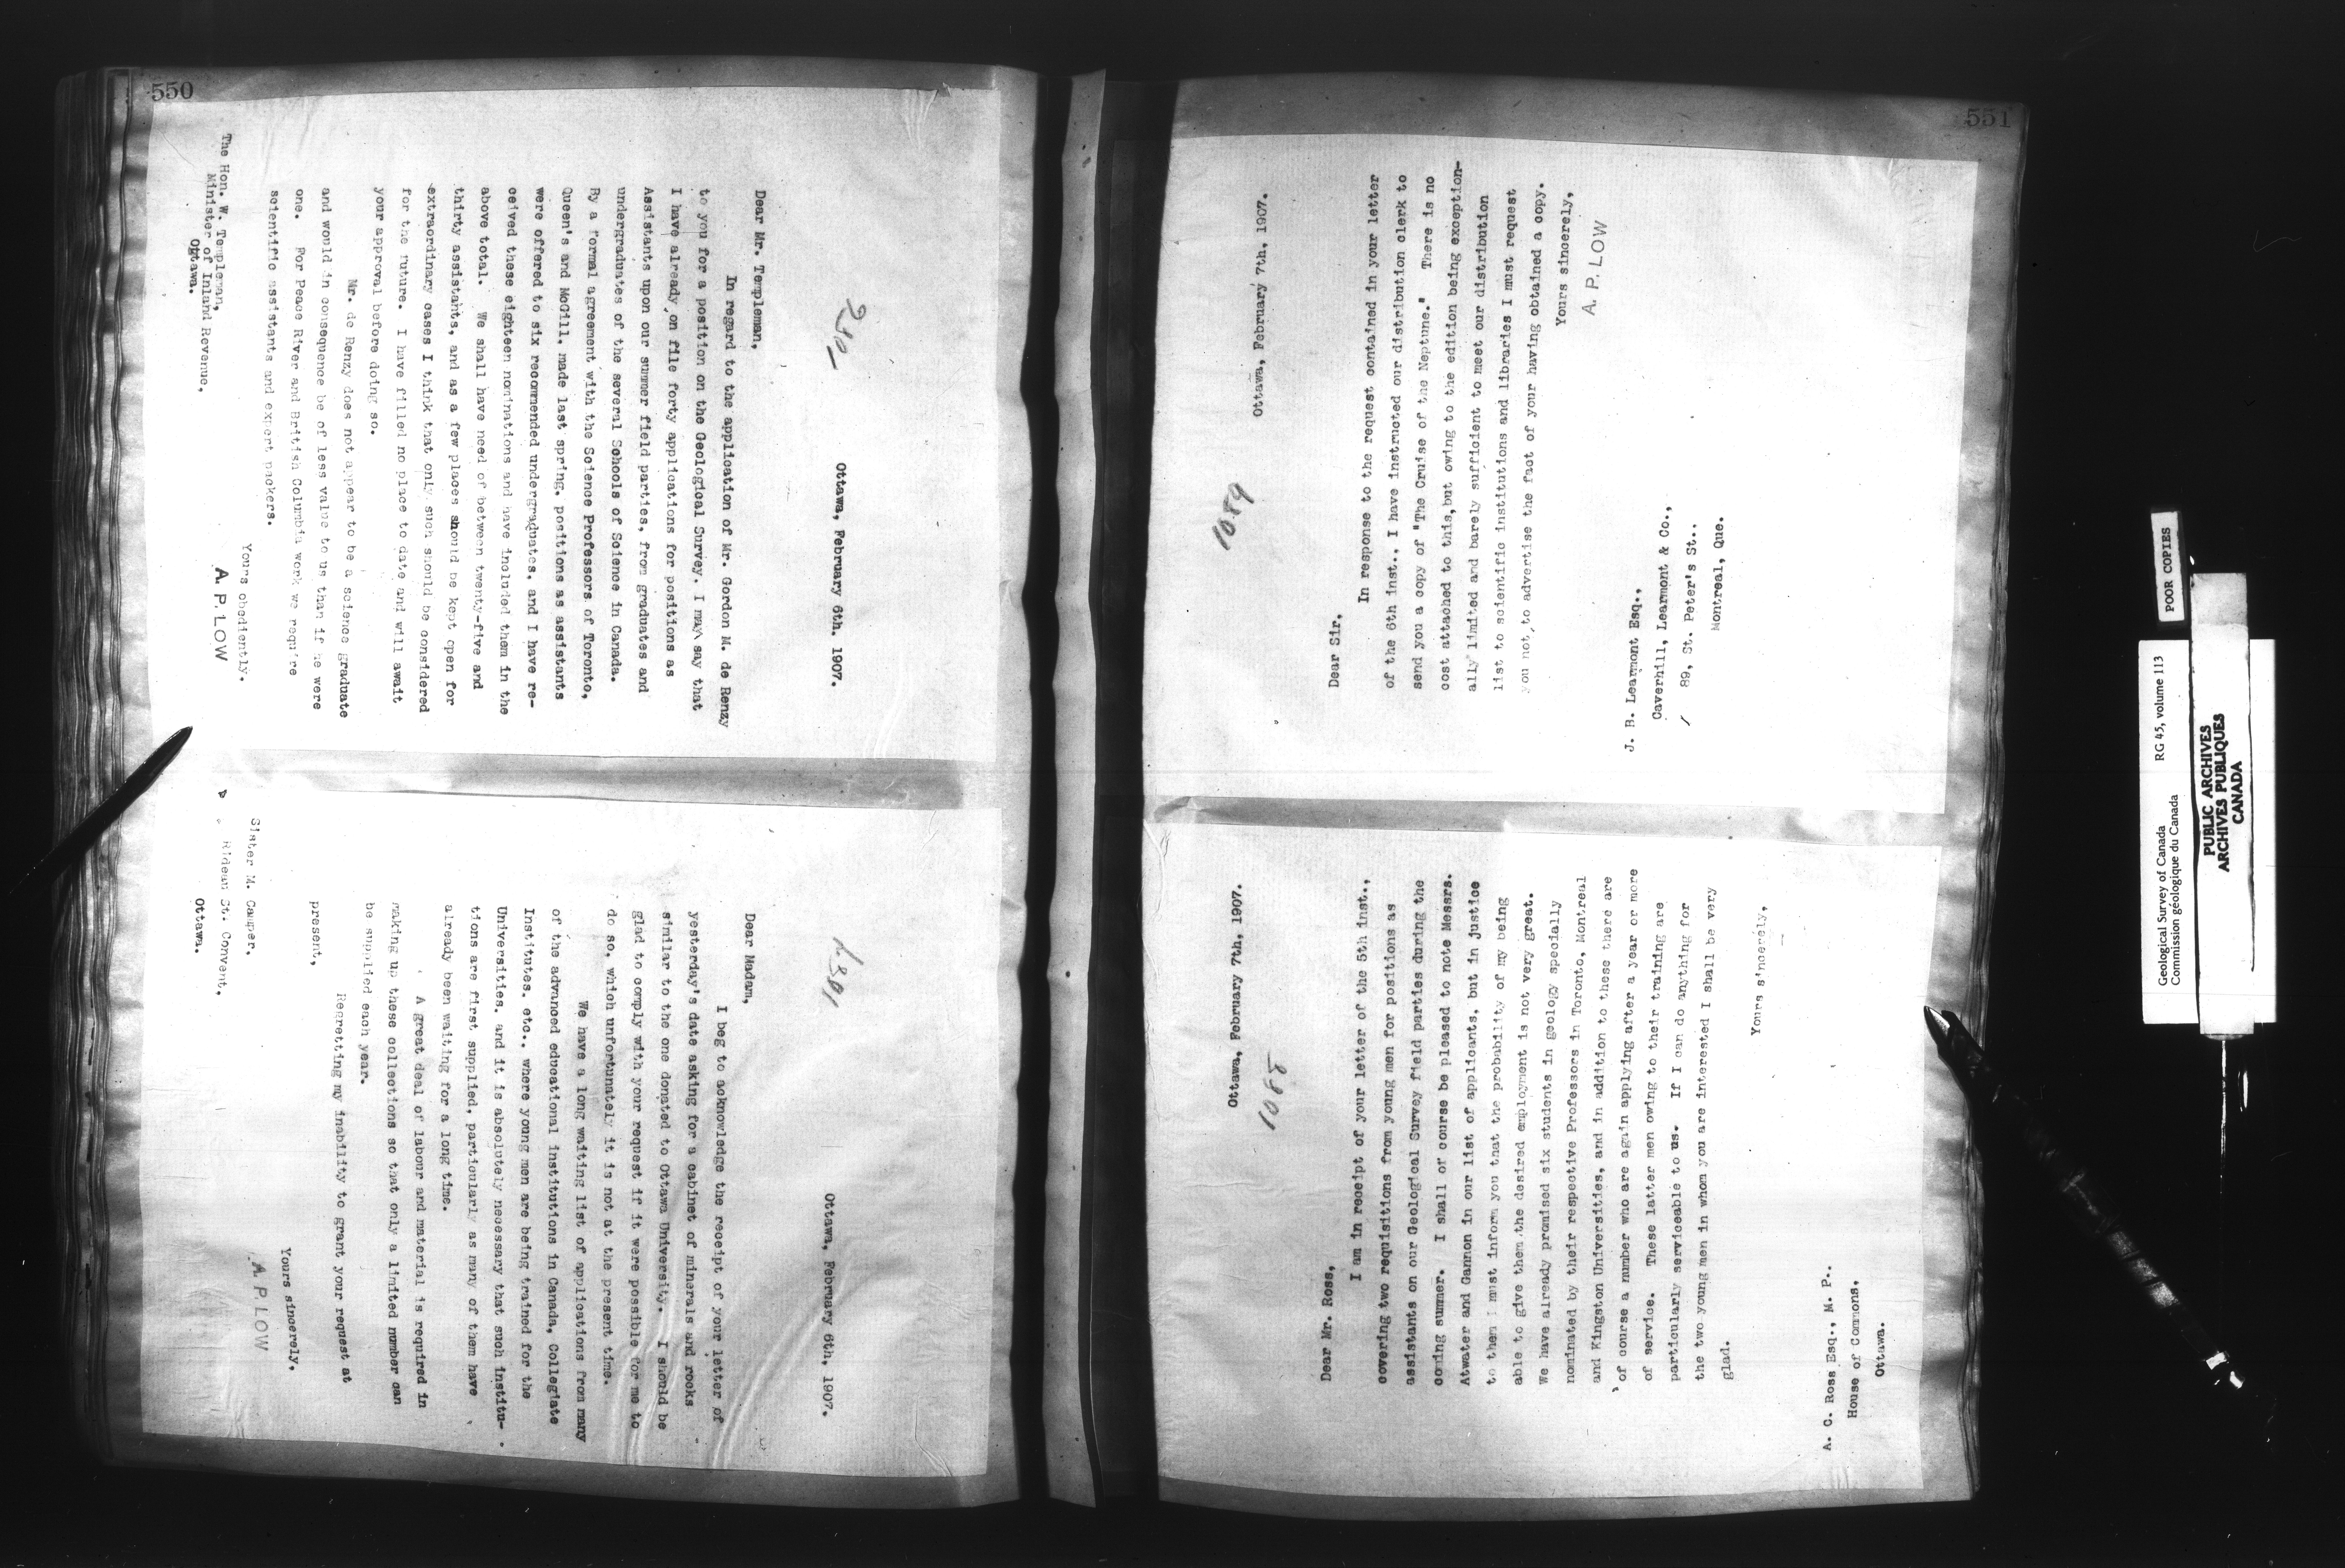 550
250
Ottawa, February 6th. 1907.
Dear Mr. Templeman,
In regard to the application of Mr. Gordon M. de Renzy
to you for a position on the Geological Survey. I may say that
I have already on file forty applications for positions as
Assistants upon our summer field parties, from graduates and
undergraduates of the several Schools of Science in Canada.
By a formal agreement with the Science Professors of Toronto,
Queen's and McGill, made last spring, positions as assistants
were offered to six recommended undergraduates, and I have re-
ceived these eighteen nominations and have included them in the
above total. We shall have need of between twenty-five and
thirty assistants, and as a few places should be kept open for
extraordinary cases I think that only such should be considered
for the future. I have filled no place to date and will await
your approval before doing so.
Mr. de Renzy does not appear to be a science graduate
and would in consequence be of less value to us than if he were
one. For Peace River and British Columbia work we require
scientific assistants and expert packers.
Yours obediently.
A. P. LOW
The Hon. W. Templeman,
Minister of Inland Revenue,
Ottawa.
Ottawa, February 6th, 1907.
Dear Madam,
I beg to acknowledge the receipt of your letter of
yesterday's date asking for a cabinet of minerals and rocks
similar to the one donated to Ottawa University. I should be
glad to comply with your request if it were possible for me to
do so, which unfortunately it is not at the present time.
We have a long waiting list of applications from many
of the advanced educational institutions in Canada, Collegiate
Institutes. etc., where young men are being trained for the
Universities, and it is absolutely necessary that such institu-
tions are first supplied, particularly as many of them have
already been waiting for a long time.
A great deal of labour and material is required in
making up these collections so that only a limited number can
be supplied each year.
Regretting my inability to grant your request at
present,
Yours sincerely,
A. P. LOW
Sister M. Camper.
Rideau St. Convent,
Ottawa.
551
Ottawa, February 7th, 1907.
1089
Dear Sir,
In response to the request contained in your letter
of the 6th inst., I have instructed our distribution clerk to
send you a copy of "The Cruise of the Neptune." There is no
cost attached to this,but owing to the edition being exception-
ally limited and barely sufficient to meet our distribution
list to scientific institutions and libraries I must request
you not to advertise the fact of your having obtained a copy.
Yours sincerely,
A. P. LOW
J. B. Learmont Esq.,
Caverhill, Learmont & Co.,
89, St. Peter's St..
Montreal, Que.
Ottawa, February 7th, 1907.
Dear Mr. Ross,
I am in receipt of your letter of the 5th inst.,
covering two requisitions from young men for positions as
assistants on our Geological Survey field parties during the
coming summer. I shall of course be pleased to note Messrs.
Atwater and Gannon in our list of applicants, but in justice
to them I must inform you that the probability of my being
able to give them the desired employment is not very great.
We have already promised six students in geology specially
nominated by their respective Professors in Toronto, Montreal
and Kingston Universities, and in addition to these there are
of course a number who are again applying after a year or more
of service. These latter men owing to their training are
particularly serviceable to us. If I can do anything for
the two young men in whom you are interested I shall be very
glad.
Yours sincerely,
A. C. Ross Esq., M. P..
House of Commons,
Ottawa.
POOR COPIES
Geological Survey of Canada RG 45, volume 113
Commission géologique du Canada
PUBLIC ARCHIVES
ARCHIVES PUBLIQUES
CANADA